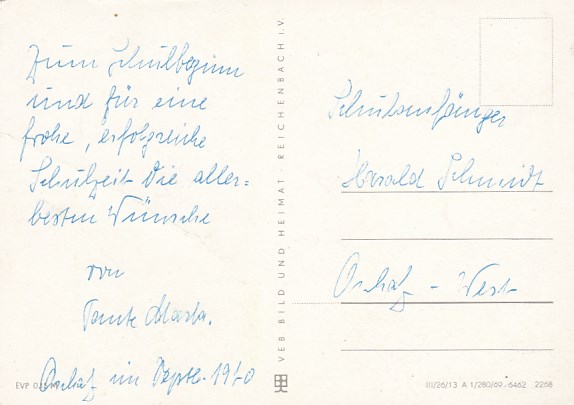 Zum Schulbeginn
und für eine
frohe, erfolgreiche
Schulzeit die aller=
besten Wünsche
von
Tante Marta.
Oschatz im Septb. 1970
EVP 0,25 M
VEB BILD UND HEIMAT REICHENBACH I.V.
Schulanfänger
Harald Schmidt
Oschatz - West
III/26/13 A 1/280/69 - 6462 2268